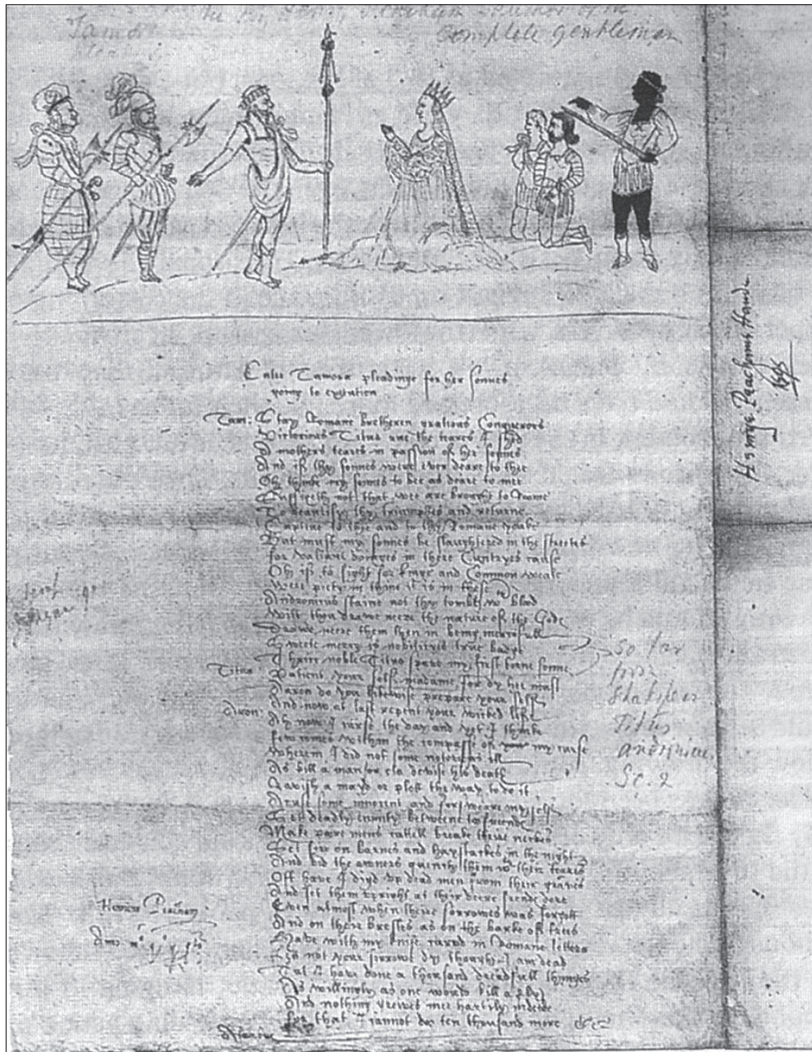 complete gentleman
Enter Tamora pleadinge for her sonnes
going to execution
Tam: Stay Romane bretheren gratious Conquerors
Victorious Titus rue the teares I shed
A mothers teares in passion of her sonnes
And if thy sonnes were ever deare to thee
Oh thinke my sonnes to bee as deare to mee
Sufficeth not that wee are brought to Roome
To beautify thy triumphes and returne
Captiue to thee and to thy Romane yoake
But must my sonnes be slaughtered in the streetes
for valiant doinges in there Cuntryes cause
Oh if to fight for kinge and Common weale
Were piety in thine it is in these
Andronicus staine not thy tombe wth blood
Wilt thou drawe neere the nature of the Gods
Drawe neere them then in being mercifull
Sweete mercy is nobilityes true badge
Thrice noble Titus spare my first borne sonne
Titus: Patient your self madame for dy hee must
Aaron do you likewise prepare your self
And now at last repent your wicked life
Aron: Ah now I curse the day and yet I thinke
few comes within the compasse of my curse
Wherein I did not some notorious ill
As kill a man or els devise his death
Ravish a mayd or plott the way to do it
Acuse some innocent and forsweare myself
Set deadly enmity betweene to freends
Make poore mens cattell breake theire neckes
Set fire on barnes and haystackes in the night
And bid the owners quench them wth their teares
Oft have I digd vp dead men from their graves
And set them vpright at their deere frends dore
Even almost when theire sorrowes was forgott
And on their brestes as on the barke of trees
Have with my knife carved in Romane letters
Lett not your sorrowe dy though I am dead
Tut I have done a thousand dreadfull thinges
As willingly as one would kill a fly
And nothing greives mee hartily indeede
for that I cannot doo ten thousand more &c
Henrye Peachams Hande
1595
so far
from
Shakspear
Titus
Andronicus
Sc. 2